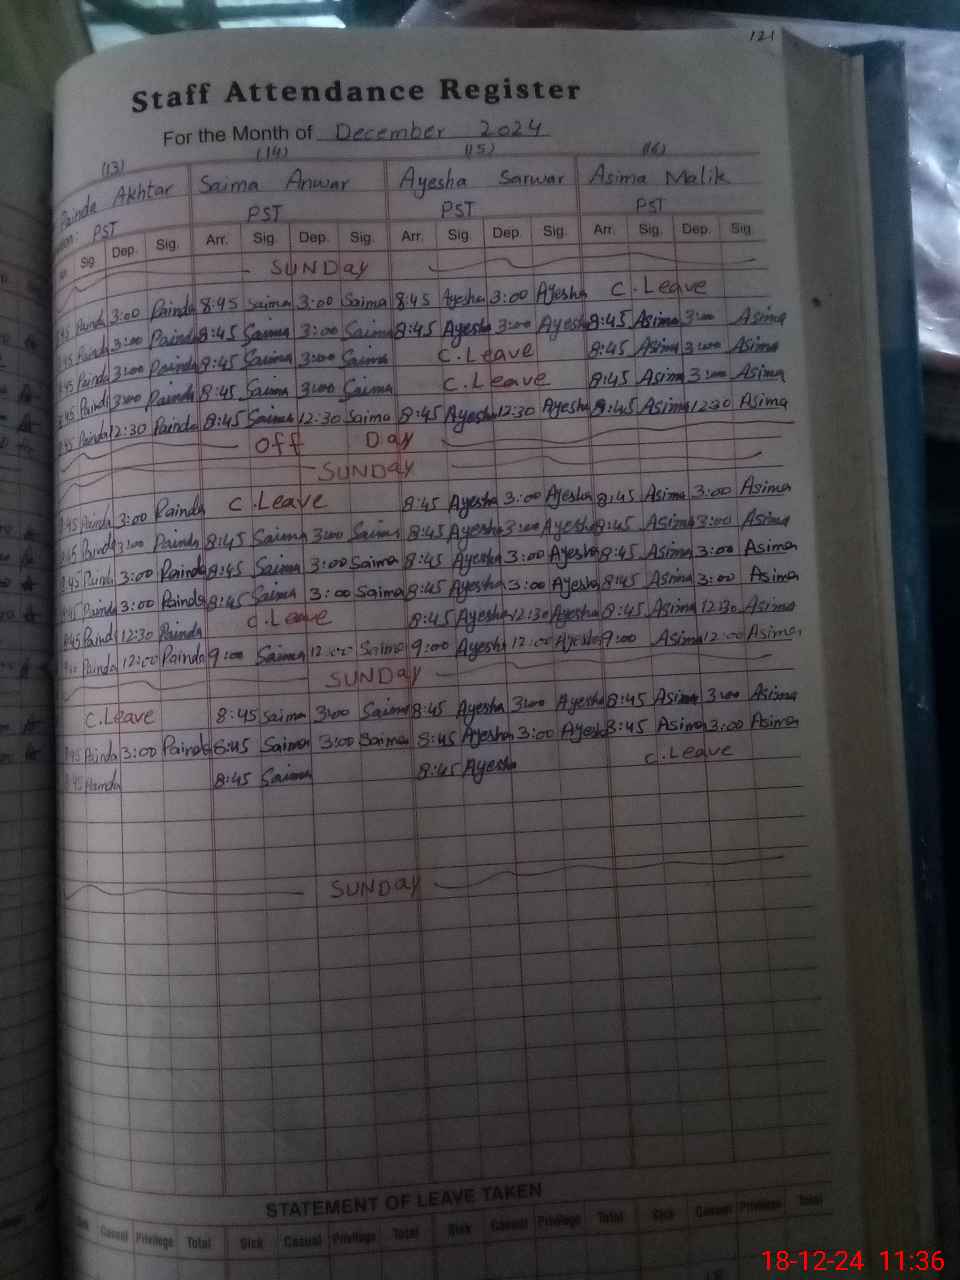 121
Staff Attendance Register
For the Month of December 2024
(13) (14) (15) (16)
Painda Akhtar Saima Anwar Ayesha Sarwar Asima Malik
PST PST PST PST
Sig. Dep. Sig. Arr. Sig. Dep. Sig. Arr. Sig. Dep. Sig. Arr. Sig. Dep. Sig.
SUNDay
Painda 3:00 Painda 8:45 Saima 3:00 Saima 8:45 Ayesha 3:00 Ayesha C.Leave
Painda 3:00 Painda 8:45 Saima 3:00 Saima 8:45 Ayesha 3:00 Ayesha 8:45 Asima 3:00 Asima
Painda 3:00 Painda 8:45 Saima 3:00 Saima C.Leave 8:45 Asima 3:00 Asima
Painda 3:00 Painda 8:45 Saima 3:00 Saima C.Leave 8:45 Asima 3:00 Asima
Painda 12:30 Painda 8:45 Saima 12:30 Saima 8:45 Ayesha 12:30 Ayesha 8:45 Asima 12:30 Asima
Off Day
SUNDay
Painda 3:00 Painda C.Leave 8:45 Ayesha 3:00 Ayesha 8:45 Asima 3:00 Asima
Painda 3:00 Painda 8:45 Saima 3:00 Saima 8:45 Ayesha 3:00 Ayesha 8:45 Asima 3:00 Asima
8:45 Painda 3:00 Painda 8:45 Saima 3:00 Saima 8:45 Ayesha 3:00 Ayesha 8:45 Asima 3:00 Asima
Painda 3:00 Painda 8:45 Saima 3:00 Saima 8:45 Ayesha 3:00 Ayesha 8:45 Asima 3:00 Asima
8:45 Painda 12:30 Painda C.Leave 8:45 Ayesha 12:30 Ayesha 8:45 Asima 12:30 Asima
Painda 12:00 Painda 9:00 Saima 12:00 Saima 9:00 Ayesha 12:00 Ayesha 9:00 Asima 12:00 Asima
SUNDay
C.Leave 8:45 Saima 3:00 Saima 8:45 Ayesha 3:00 Ayesha 8:45 Asima 3:00 Asima
8:45 Painda 3:00 Painda 8:45 Saima 3:00 Saima 8:45 Ayesha 3:00 Ayesha 8:45 Asima 3:00 Asima
8:45 Painda 8:45 Saima 8:45 Ayesha C.Leave
SUNDay
STATEMENT OF LEAVE TAKEN
Casual Privilege Total Sick Casual Privilege Total Sick Casual Privilege Total Sick Casual Privilege Total
18-12-24 11:36